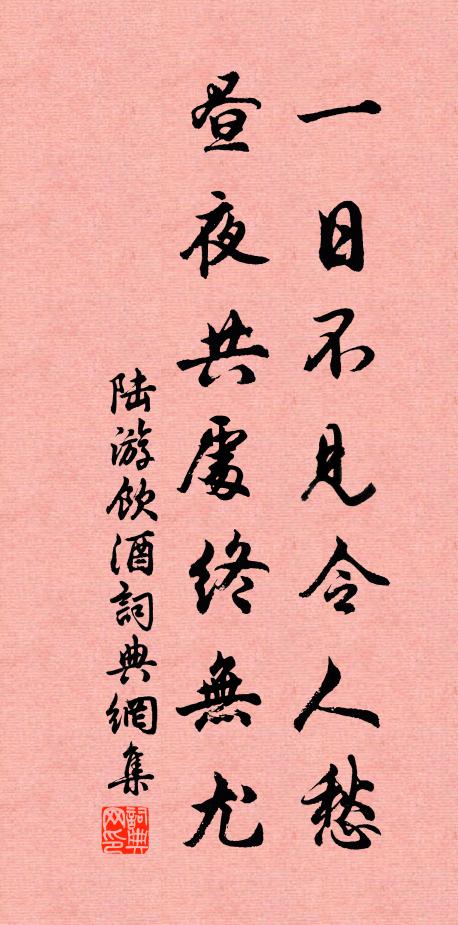 一日不見令人愁
昼夜共處終無尤
陆游飲酒詞典網集
詞典网印